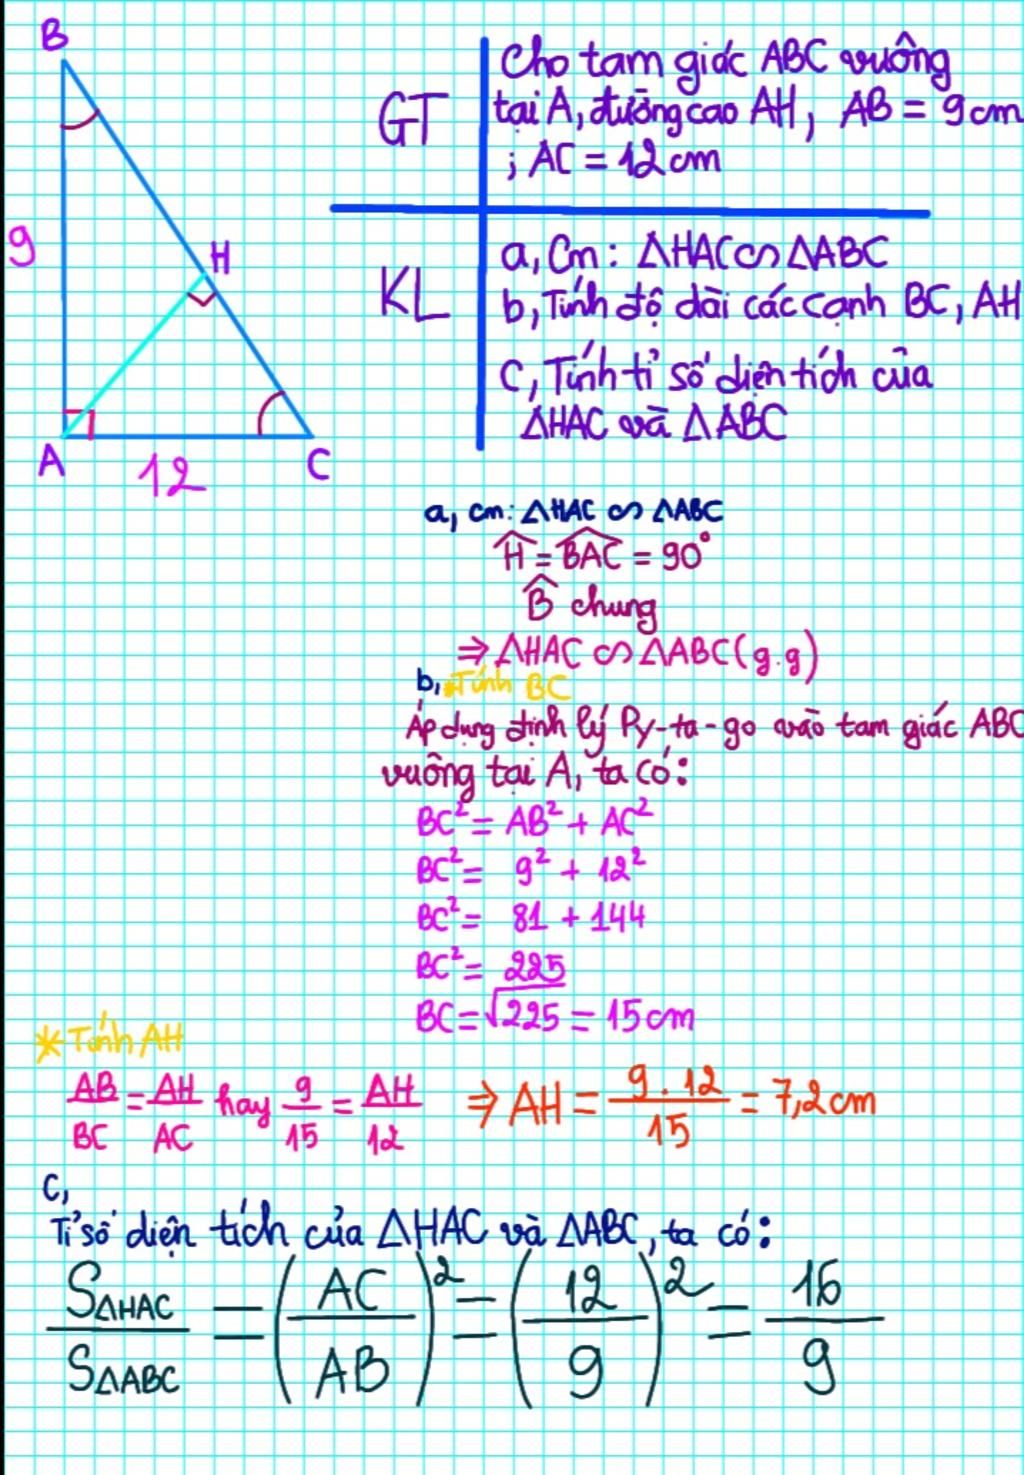 B
9
H
A
12
C
GT
Cho tam giác ABC vuông
tại A, đường cao AH, AB = 9cm
; AC = 12cm
KL
a, Cm: △HAC ∽ △ABC
b, Tính độ dài các cạnh BC, AH
C, Tính tỉ số diện tích của
△HAC và △ABC
a, cm: △HAC ∽ △ABC
Ĥ = BAC = 90°
B̂ chung
⇒ △HAC ∽ △ABC (g.g)
b, *Tính BC
Áp dụng định lý Py-ta-go vào tam giác ABC
vuông tại A, ta có:
BC² = AB² + AC²
BC² = 9² + 12²
BC² = 81 + 144
BC² = 225
BC = √225 = 15cm
* Tính AH
AB/BC = AH/AC hay 9/15 = AH/12 ⇒ AH = 9.12/15 = 7,2cm
C,
Tỉ số diện tích của △HAC và △ABC, ta có:
S△HAC/S△ABC = (AC/AB)² = (12/9)² = 16/9